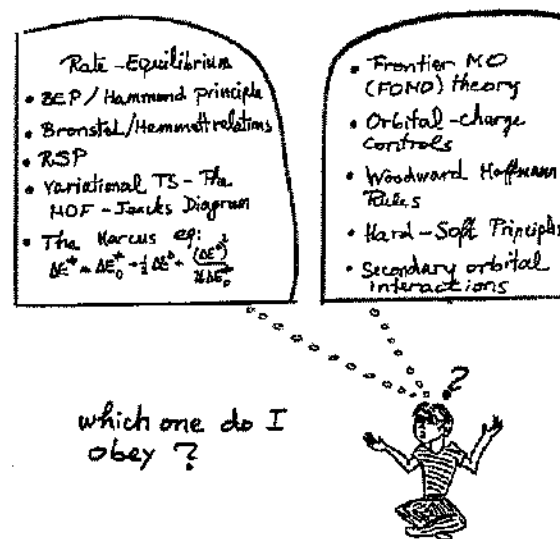 Rate-Equilibrium
• BEP/Hammond principle
• Bronsted/Hammett relations
• RSP
• Variational TS- The
MOF-Jencks Diagram
• The Marcus eq:
ΔE‡ = ΔE‡₀ + ½ ΔE° + (ΔE°)²/16ΔE‡₀
• Frontier MO
(FOMO) theory
• Orbital-charge
Controls
• Woodward Hoffmann
Rules
• Hard-Soft Principles
• Secondary orbital
interactions
?
which one do I
obey ?